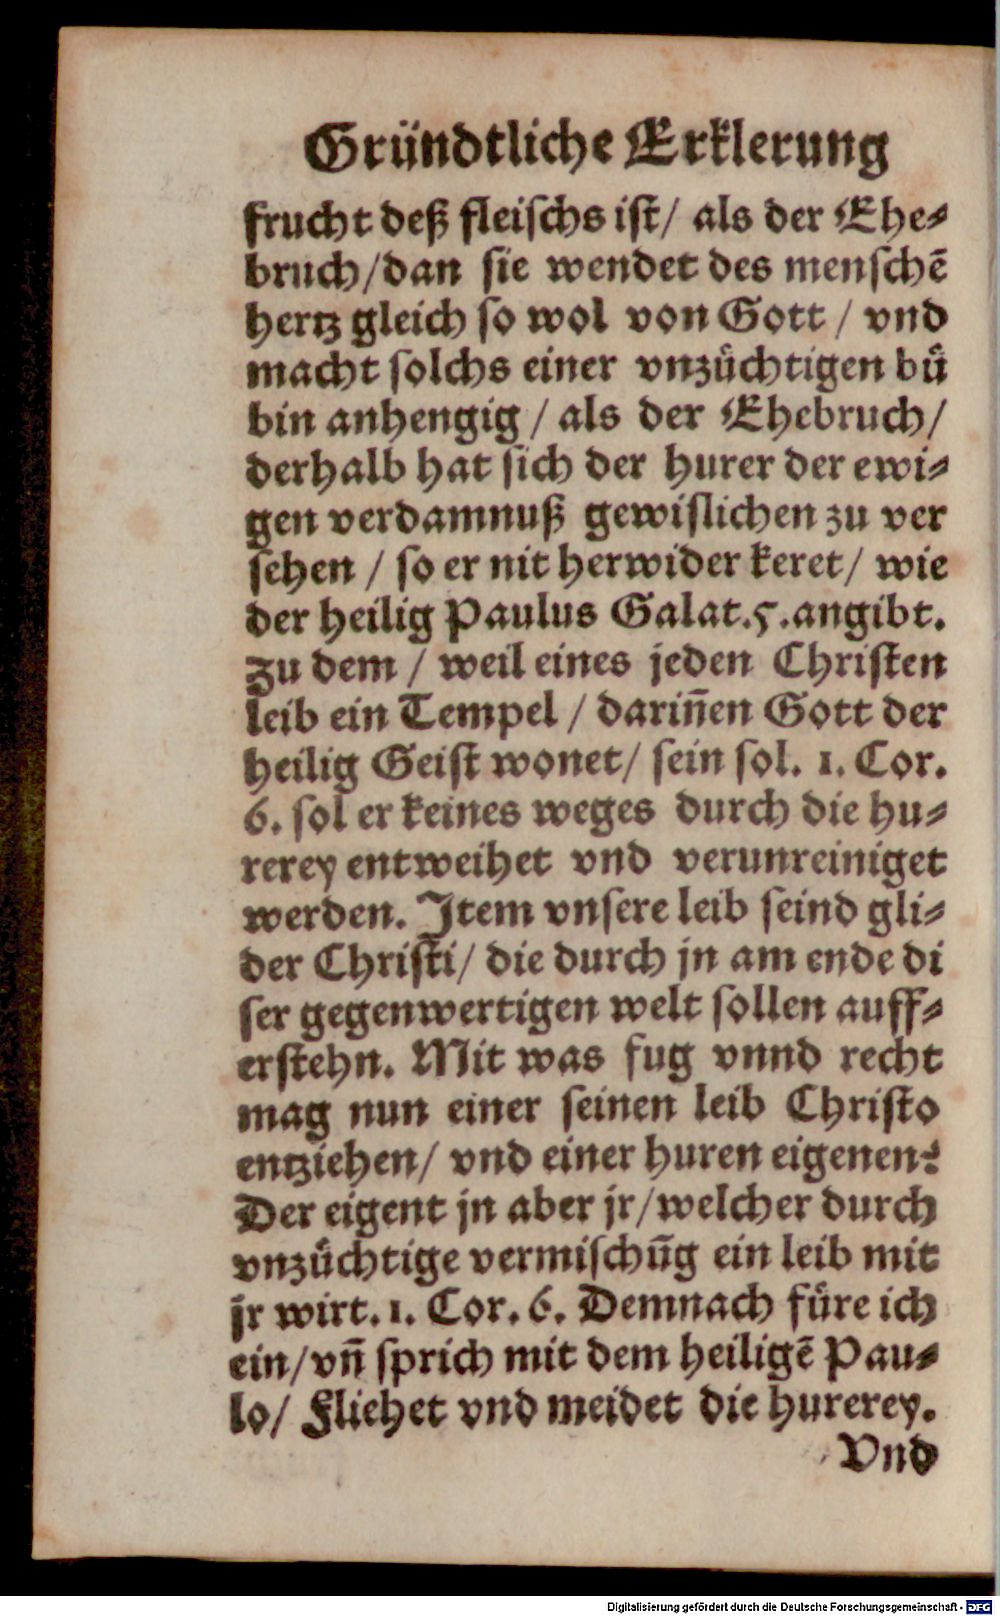 Gründtliche Erklerung
frucht deß fleischs ist/ als der Ehe-
bruch/dan sie wendet des menschẽ
hertz gleich so wol von Gott / vnd
macht solchs einer vnzůchtigen bů
bin anhengig / als der Ehebruch/
derhalb hat sich der hurer der ewi-
gen verdamnuß gewislichen zu ver
sehen / so er nit herwider keret/ wie
der heilig Paulus Galat.5.angibt.
Zu dem / weil eines jeden Christen
leib ein Tempel / dariñen Gott der
heilig Geist wonet/ sein sol. 1. Cor.
6. sol er keines weges durch die hu-
rerey entweihet vnd verunreiniget
werden. Item vnsere leib seind gli-
der Christi/ die durch jn am ende di
ser gegenwertigen welt sollen auff-
erstehn. Mit was fug vnnd recht
mag nun einer seinen leib Christo
entziehen/ vnd einer huren eigenen?
Der eigent jn aber jr/welcher durch
vnzůchtige vermischũg ein leib mit
jr wirt. 1. Cor. 6. Demnach füre ich
ein/vñ sprich mit dem heiligẽ Pau-
lo/ Fliehet vnd meidet die hurerey.
Vnd
Digitalisierung gefördert durch die Deutsche Forschungsgemeinschaft - DFG